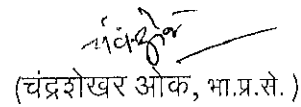 (चंद्रशेखर ओक, भा.प्र.से.)